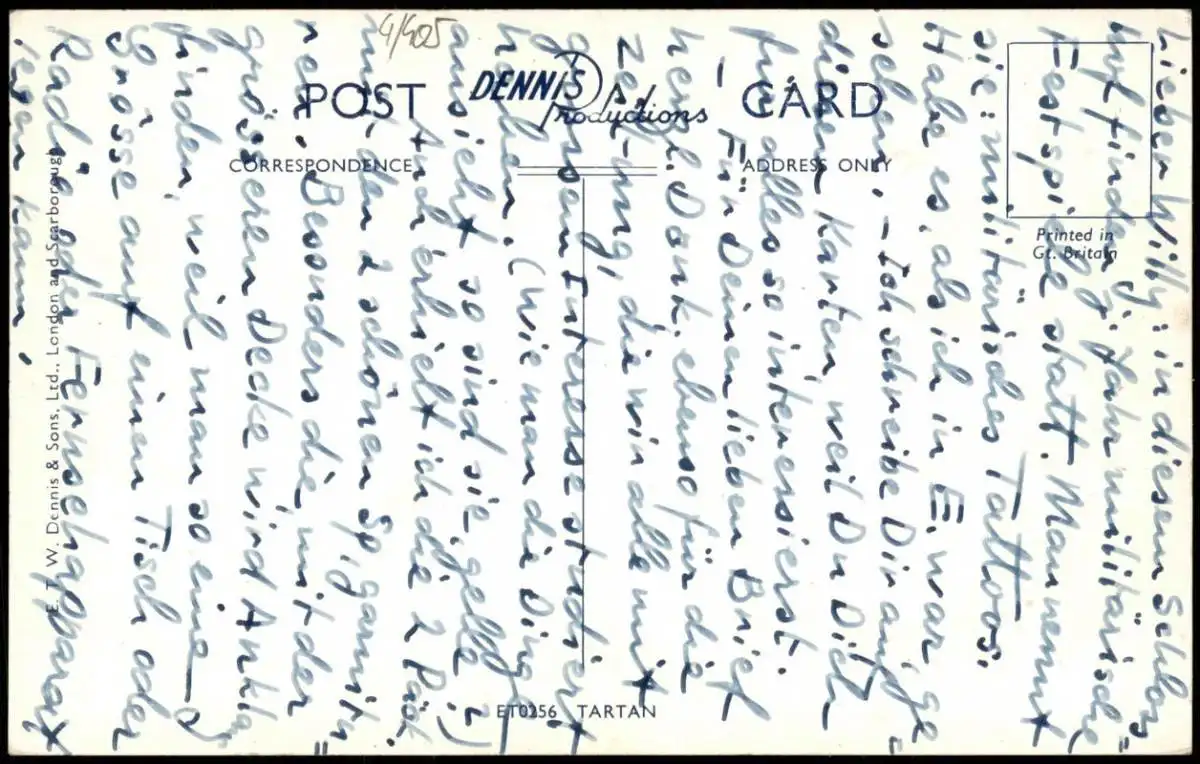 4/405
POST CARD
DENNIS
Productions
CORRESPONDENCE
ADDRESS ONLY
Printed in
Gt. Britain
E. T. W. Dennis & Sons, Ltd., London and Scarborough
ET0256 TARTAN
Lieber Willy: in diesem Schloss=
hof finden j. Jahr militärische
Festspiele statt. Man nennt
sie: militärisches Tattoos.
Habe es, als ich in E. war ge=
sehen, – Ich schreibe Dir auf
diesen Karten, weil Du Dich
für alles so interessierst.
– Für Deinen lieben Brief
herzl. Dank. ebenso für die
Zeitung, die wir alle mit
grossem Interesse studiert
haben. (wie man die Dinge
ansieht so sind sie, gelle?)
Auch erhielt ich die 2 Päck.
mit den 2 schönen Sp. garnitu=
ren. Besonders die, mit der
grösseren Decke wird Anklang
finden, weil man so eine
Grösse auf einen Tisch oder
Radio oder Fernsehapparat
legen kann.